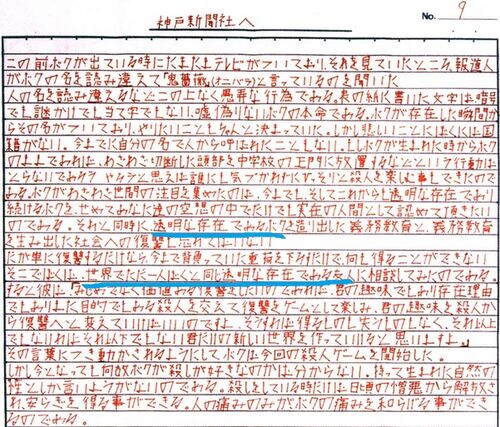 神戸新聞社へ
No. 9
この前ボクが出ている時にたまたまテレビがついており、それを見ていたところ、報道人
がボクの名を読み違えて「鬼薔薇」(オニバラ)と言っているのを聞いた
人の名を読み違えるなどこの上なく愚弄な行為である。表の紙に書いた文字は、暗号
でも謎かけでも当て字でもない、嘘偽りないボクの本命である。ボクが存在した瞬間か
らその名がついており、やりたいこともちゃんと決まっていた。しかし悲しいことにぼくには国
籍がない。今までに自分の名で人から呼ばれたこともない。もしボクが生まれた時からボク
のままであれば、わざわざ切断した頭部を中学校の正門に放置するなどという行動はと
らないであろう やろうと思えば誰にも気づかれずにひっそりと殺人を楽しむ事もできたので
ある。ボクがわざわざ世間の注目を集めたのは、今までも、そしてこれからも透明な存在であり
続けるボクを、せめてあなた達の空想の中でだけでも実在の人間として認めて頂きたい
のである。それと同時に、透明な存在であるボクを造り出した義務教育と、義務教育
を生み出した社会への復讐も忘れてはいない
だが単に復讐するだけなら、今まで背負っていた重荷を下ろすだけで、何も得ることができない
そこでぼくは、世界でただ一人ぼくと同じ透明な存在である友人に相談してみたのである。
すると彼は、「みじめでなく価値ある復讐をしたいのであれば、君の趣味でもあり存在理由
でもありまた目的でもある殺人を交えて復讐をゲームとして楽しみ、君の趣味を殺人か
ら復讐へと変えていけばいいのですよ、そうすれば得るものも失うものもなく、それ以上
でもなければそれ以下でもない君だけの新しい世界を作っていけると思いますよ。」
その言葉につき動かされるようにしてボクは今回の殺人ゲームを開始した。
しかし今となっても何故ボクが殺しが好きなのかは分からない。持って生まれた自然の
性としか言いようがないのである。殺しをしている時だけは日頃の憎悪から解き放た
れ、安らぎを得る事ができる。人の痛みのみが、ボクの痛みを和らげる事ができ
るのである。